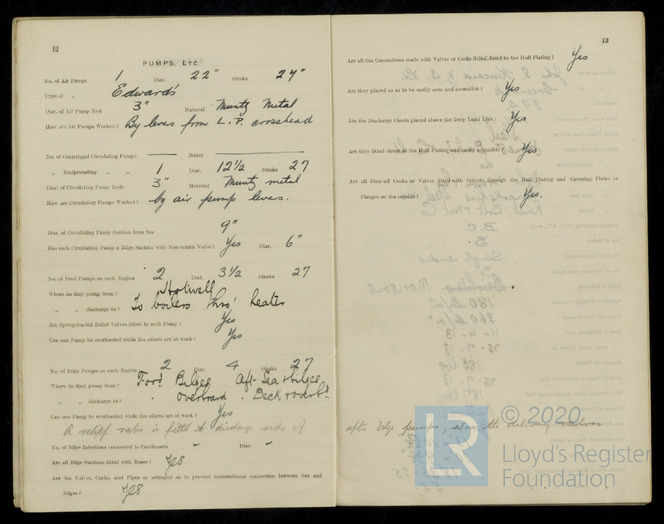 12
PUMPS, ETC.
No. of Air Pumps 1 Diar. 22" Stroke 24"
Type of „ Edwards'
Diar. of Air Pump Rod 3" Material Muntz Metal
How are Air Pumps Worked? By levers from L.P. crosshead
No. of Centrifugal Circulating Pumps — Maker —
„ Reciprocating „ „ 1 Diar. 12½ Stroke 27
Diar. of Circulating Pump Rods 3" Material Muntz metal
How are Circulating Pumps Worked? by air pump levers.
Diar. of Circulating Pump Suction from Sea 9"
Has each Circulating Pump a Bilge Suction with Non-return Valve? Yes Diar. 6"
No. of Feed Pumps on each Engine 2 Diar. 3½ Stroke 27
Where do they pump from? Hotwell
„ „ discharge to? To boilers thro' heater
Are Spring-loaded Relief Valves fitted to each Pump? Yes
Can one Pump be overhauled while the others are at work? Yes
No. of Bilge Pumps on each Engine 2 Diar. 4 Stroke 27
Where do they pump from? For'd Bilges Aft Sea & bilges
„ „ discharge to? overboard . Deck & overb'd
Can one Pump be overhauled while the others are at work? Yes
A relief valve is fitted to discharge side of
No. of Bilge Injections connected to Condensers – Diar. –
Are all Bilge Suctions fitted with Roses? Yes
Are the Valves, Cocks, and Pipes so arranged as to prevent unintentional connection between Sea and
Bilges? Yes
13
Are all Sea Connections made with Valves or Cocks fitted direct to the Hull Plating? Yes
Are they placed so as to be easily seen and accessible? Yes
Are the Discharge Chests placed above the Deep Load Line? Yes
Are they fitted direct to the Hull Plating and easily accessible? Yes
Are all Blow-off Cocks or Valves fitted with Spigots through the Hull Plating and Covering Plates or
Flanges on the outside? Yes.
after bilge pumps, also the delivery valves
© 2020
LR Lloyd's Register
Foundation